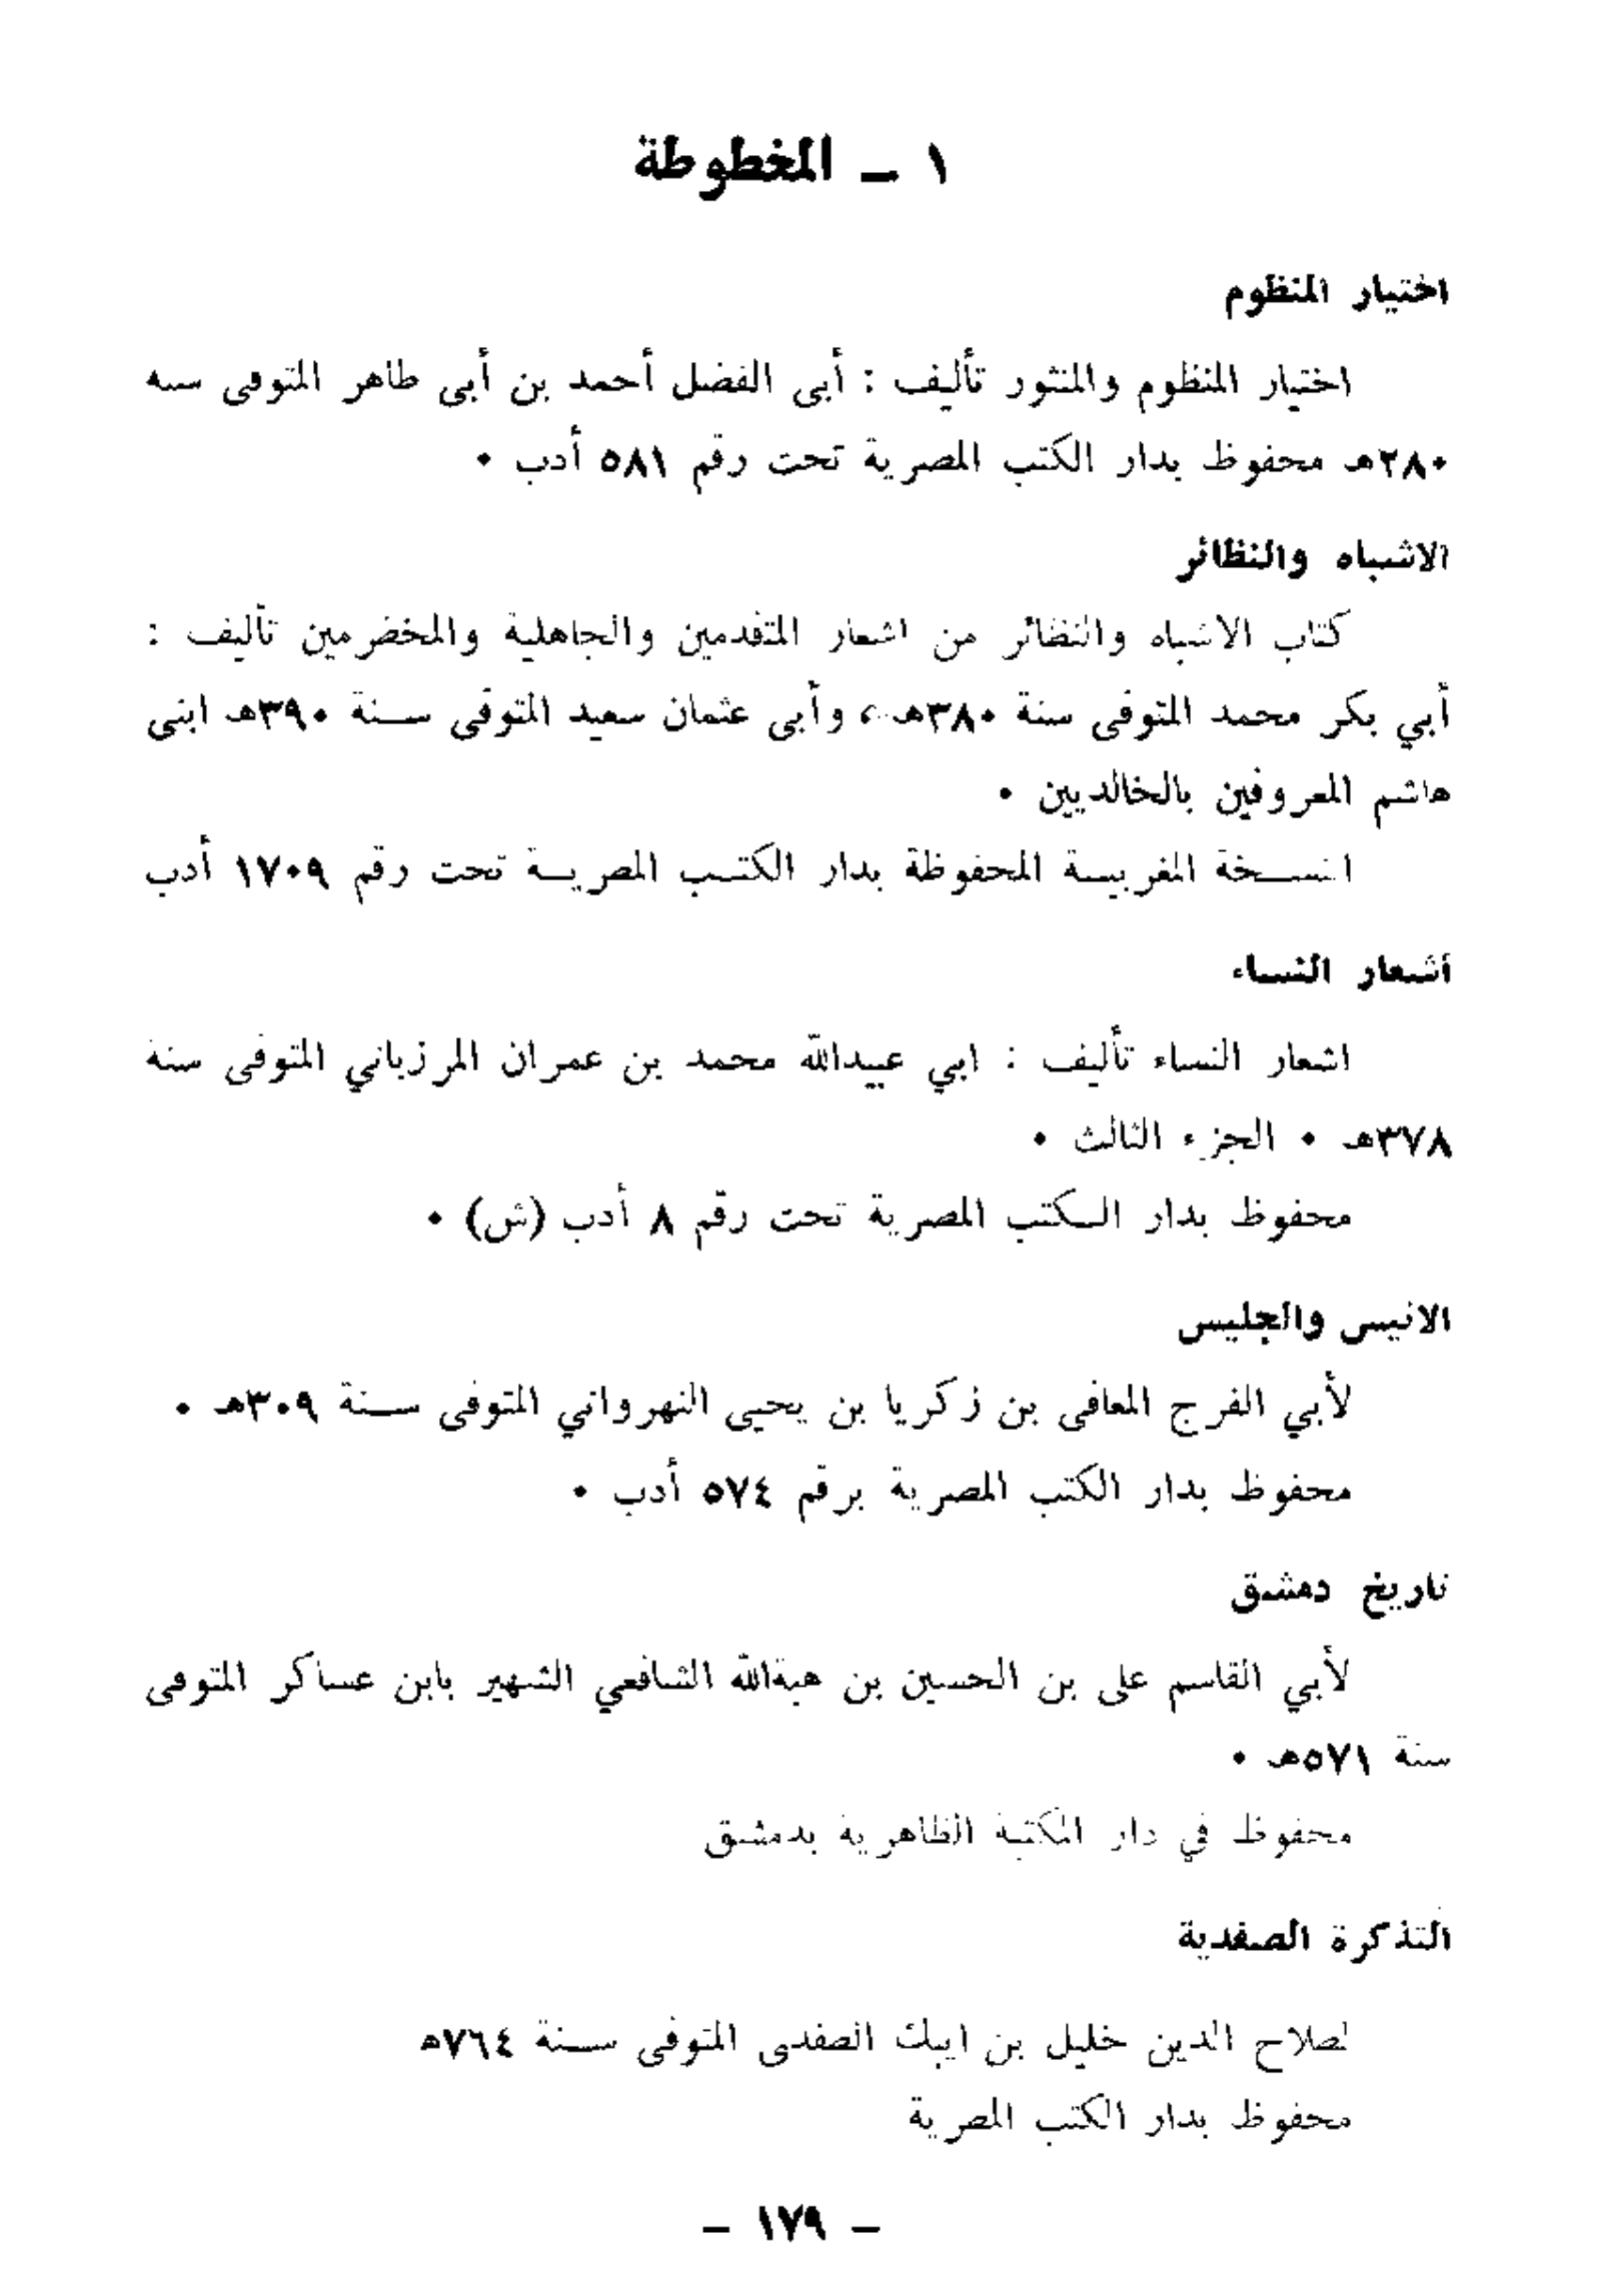 ١ ـ المخطوطة
اختيار المنظوم
اختيار المنظوم والمنثور تأليف : أبى الفضل أحمد بن أبى طاهر المتوفى سنه
٢٨٠هـ محفوظ بدار الكتب المصرية تحت رقم ٥٨١ أدب ٠
الاشباه والنظائر
كتاب الاشباه والنظائر من اشعار المتقدمين والجاهلية والمخضرمين تأليف :
أبي بكر محمد المتوفى سنة ٣٨٠هـ ، وأبى عثمان سعيد المتوفى سـنة ٣٩٠هـ ابنى
هاشم المعروفين بالخالديين ٠
النسـخة المغربيـة المحفوظة بدار الكتـب المصريـة تحت رقم ١٧٠٩ أدب
أشعار النساء
اشعار النساء تأليف : ابي عبيدالله محمد بن عمران المرزباني المتوفى سنة
٣٧٨هـ ٠ الجزء الثالث ٠
محفوظ بدار الـكتب المصرية تحت رقم ٨ أدب (ش) ٠
الانيس والجليس
لأبي الفرج المعافى بن زكريا بن يحيى النهرواني المتوفى سـنة ٣٠٩هـ ٠
محفوظ بدار الكتب المصرية برقم ٥٧٤ أدب ٠
تاريخ دمشق
لأبي القاسم على بن الحسين بن هبةالله الشافعي الشهير بابن عساكر المتوفى
سنة ٥٧١هـ ٠
محفوظ في دار المكتبة الظاهرية بدمشق
التذكرة الصفدية
لصلاح الدين خليل بن ايبك الصفدى المتوفى سـنة ٧٦٤ه
محفوظ بدار الكتب المصرية
ـ ١٧٩ ـ